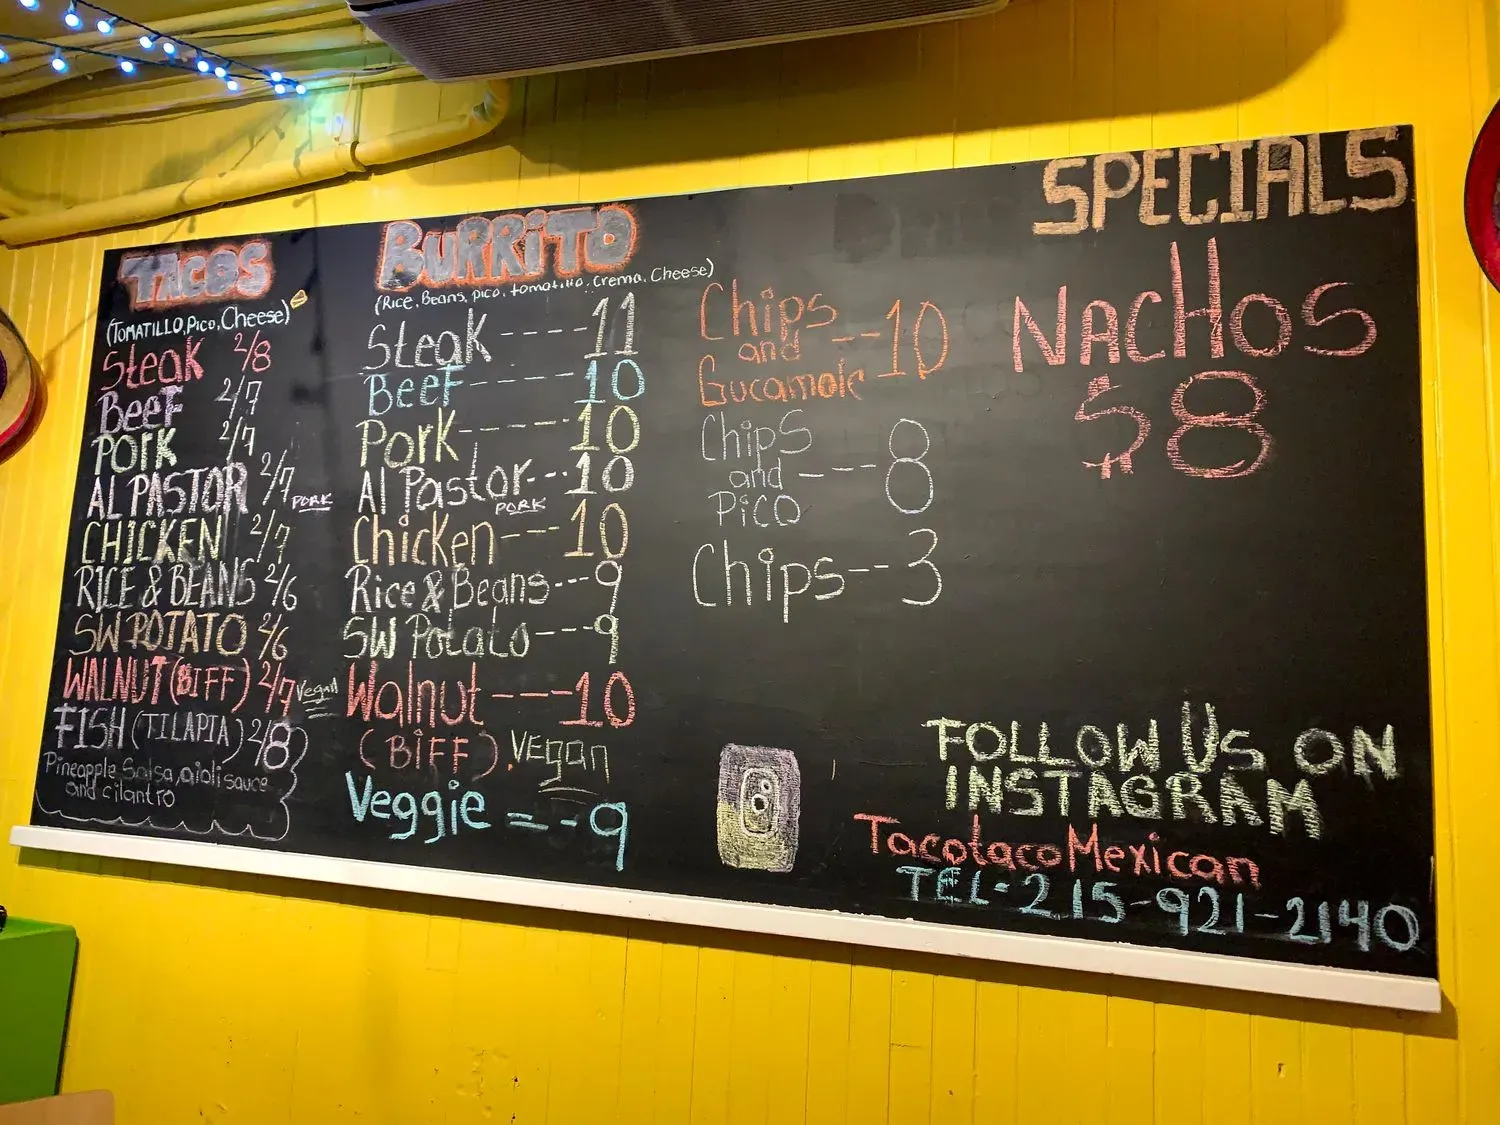 TACOS
(TOMATILLO, Pico, Cheese)
Steak 2/8
BEEF 2/7
PORK 2/7
AL PASTOR 2/7 PORK
CHICKEN 2/7
RICE & BEANS 2/6
SW POTATO 2/6
WALNUT (BIFF) 2/7 Vegan
FISH (TILAPIA) 2/8
Pineapple Salsa, aioli sauce
and cilantro
BURRITO
(Rice, Beans, pico, tomatillo, crema, Cheese)
Steak ---- 11
BEEF ------ 10
Pork ------ 10
Al Pastor --- 10
PORK
Chicken --- 10
Rice & Beans --- 9
SW Potato --- 9
Walnut ---- 10
(BIFF) VEgan
Veggie = -- 9
Chips
and --- 10
Gucamole
Chips
and ---- 8
Pico
Chips -- 3
SPECIALS
NACHOS
$8
FOLLOW Us ON
INSTAGRAM
TacotacoMexican
TEL- 215-921-2140